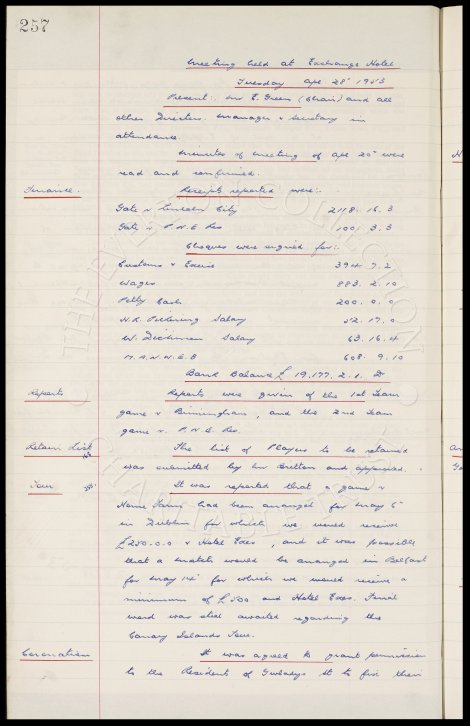 257
Meeting held at Exchange Hotel
Tuesday Apl. 28th 1953
Present:. Mr E. Green (Chair) and all
other Directors. Manager & Secretary in
attendance.
Minutes of meeting of Apl 20th were
read and confirmed.
Finance.
Receipts reported were:.
Gate v Lincoln City 2118. 16. 3
Gate v P.N.E Res 100. 3. 3
Cheques were signed for:.
Customs & Excise 394. 7. 2
Wages 883. 2. 10
Petty Cash 200. 0. 0
H.R. Pickering Salary 52. 17. 0
W. Dickinson Salary 63. 16. 4
M.A.N.W.E.B 608. 9. 10
Bank Balance £19,177. 2. 1. Dr
Reports
Reports were given of the 1st Team
game v Birmingham, and the 2nd Team
game v. P.N.E. Res.
Retain List
The list of Players to be retained
was submitted by Mr Britton and approved.
Tour
It was reported that a game v
Home Farm had been arranged for May 6th
in Dublin for which we would receive
£250.0.0 & Hotel Exes, and it was possible
that a match would be arranged in Belfast
for May 14th for which we would receive a
minimum of £500 and Hotel Exes. Final
word was still awaited regarding the
Canary Islands Tour.
Coronation
It was agreed to grant permission
to the Residents of Gwladys St to fix their
THE EVERTON COLLECTION
CHARITABLE TRUST